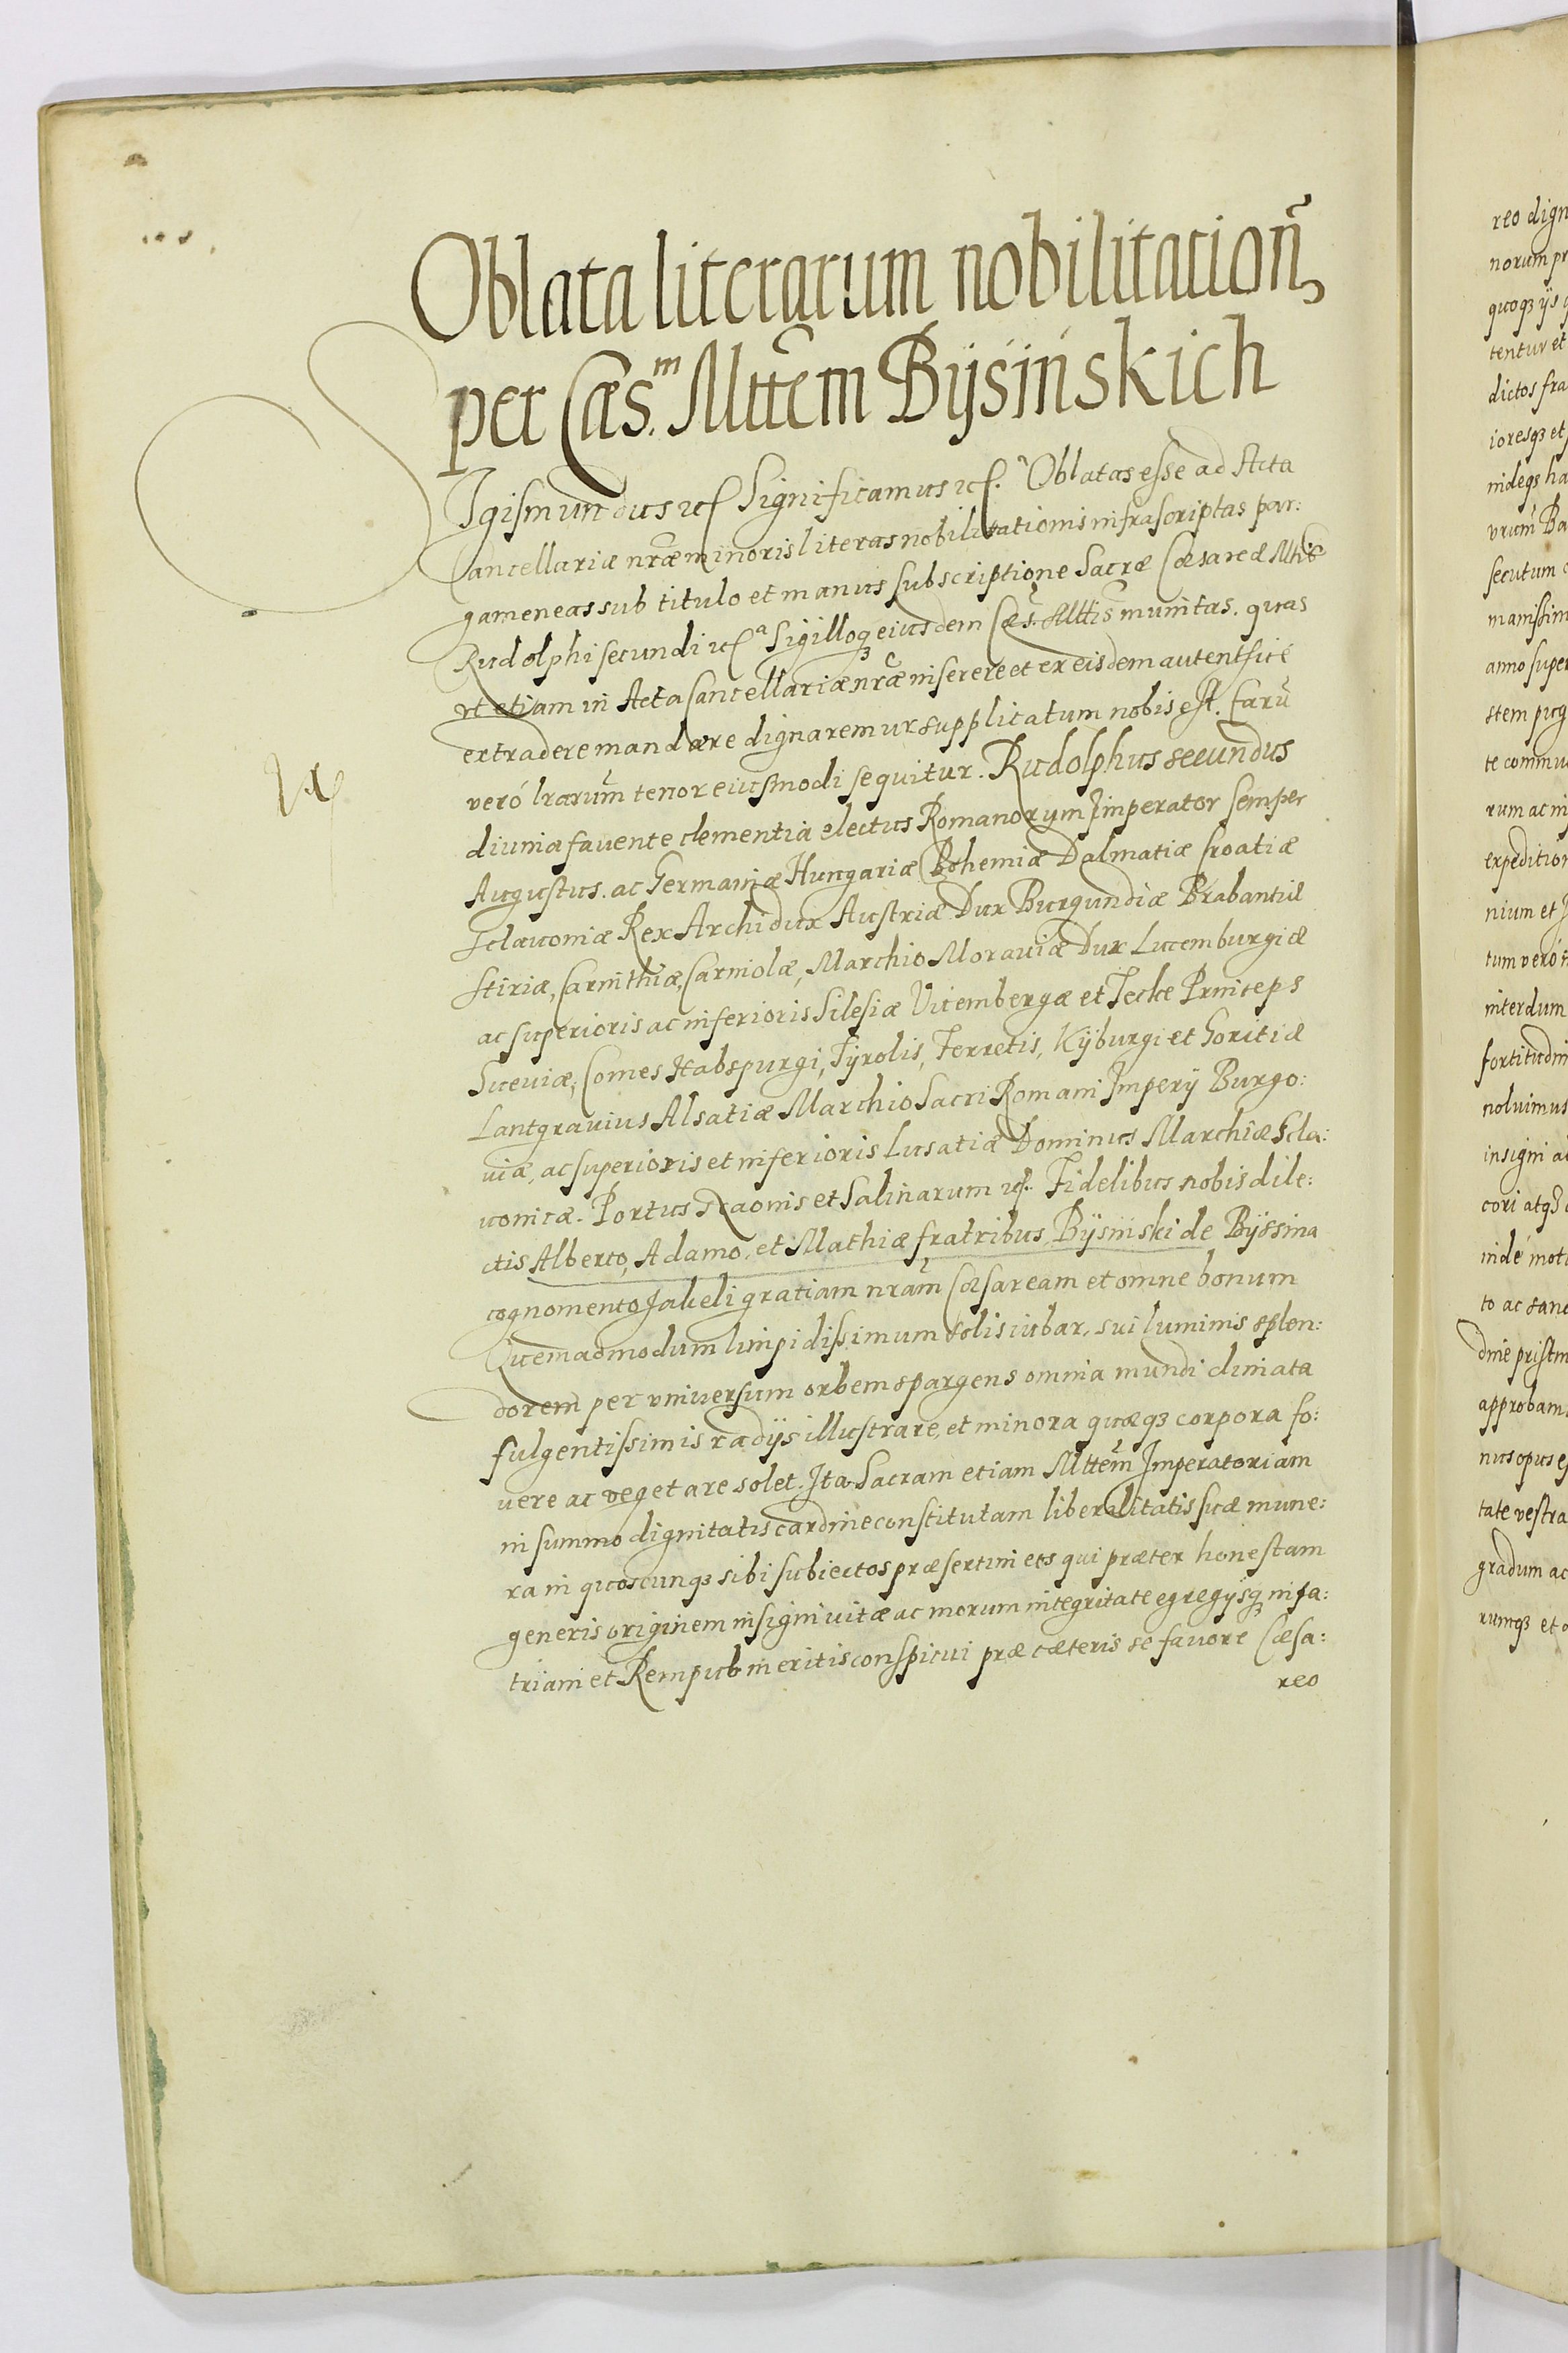 Oblata literarum nobilitation̄,
per Cæs.m Mttem̃ Bÿsińskich
Sigismundus etc Significamus etc. Oblatas esse ad Acta
Cancellariæ nrãe minoris literas nobilitationis infrascriptas par:
gameneas sub titulo et manus subscriptione Sacræ Cæsareæ Mttis
Rudolphi secundi etc Sigilloqꝫ eiusdem Cæs. Mttis munitas. quas
ut etiam in Acta Cancellariæ nrãe inserere et ex eisdem autentice
extradere mandare dignaremur supplicatum nobis est. Earũ
verò lrarum̃ tenor eiusmodi sequitur. Rudolphus secundus
diuina fauente clementia electus Romanorum Imperator semper
Augustus. ac Germaniæ Hungariæ Bohemiæ Dalmatiæ Croatiæ
Sclauoniæ Rex Archidux Austriæ Dux Burgundiæ Brabantiæ
Stiriæ, Carinthiæ, Carniolæ, Marchio Morauiæ Dux Lucemburgiæ
ac superioris ac inferioris Silesiæ Vitembergæ et Teckæ Princeps
Sueuiæ, Comes Habspurgi, Tÿrolis, Ferretis, Kÿburgi et Goritiæ
Lantgrauius Alsatiæ Marchio Sacri Romani Imperÿ Burgo:
uiæ, ac superioris et inferioris Lusatiæ Dominus Marchiæ Scla:
uonicæ. Portus Naonis et Salinarum etc. Fidelibus nobis dile:
ctis Alberto, Adamo, et Mathiæ fratribus Bÿsinski de Bÿssina
cognomento Jakeli gratiam nram̃ Cæsaream et omne bonum
Quemadmodum limpidissimum solis iubar, sui luminis splen:
dorem per vniuersum orbem spargens omnia mundi climata
fulgentissimis radÿs illustrare, et minora quæqꝫ corpora fo:
uere ac vegetare solet. Ita Sacram etiam Mttem̃ Imperatoriam
in summo dignitatis cardine constitutam liberalitatis suæ mune:
ra in quoscunqꝫ sibi subiectos præsertim eos qui præter honestam
generis originem insigni uitæ ac morum integritate egregÿsqꝫ in pa:
triam et Rempub meritis conspicui præ cæteris se fauore Cæsa:
reo
reo dign
norum pr
quoqꝫ ÿs
tentur et
dictos fra
ioresqꝫ et
indeqꝫ ha
vrum̃ Ba
secutum
manissim
anno super
stem pug
te commu
rum ac in
expedition
nium et
tum verò
interdum
fortitudin
noluimus
insigni a
cori atqꝫ
indé mot
to ac sanc
dine pristin
approbam
nus opus e
tate vestra
gradum ac
rumqꝫ et